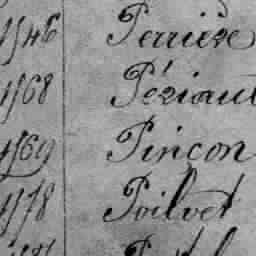 1546 Perrière
1568 Périaut
1569 Pinçon
1578 Poilvet